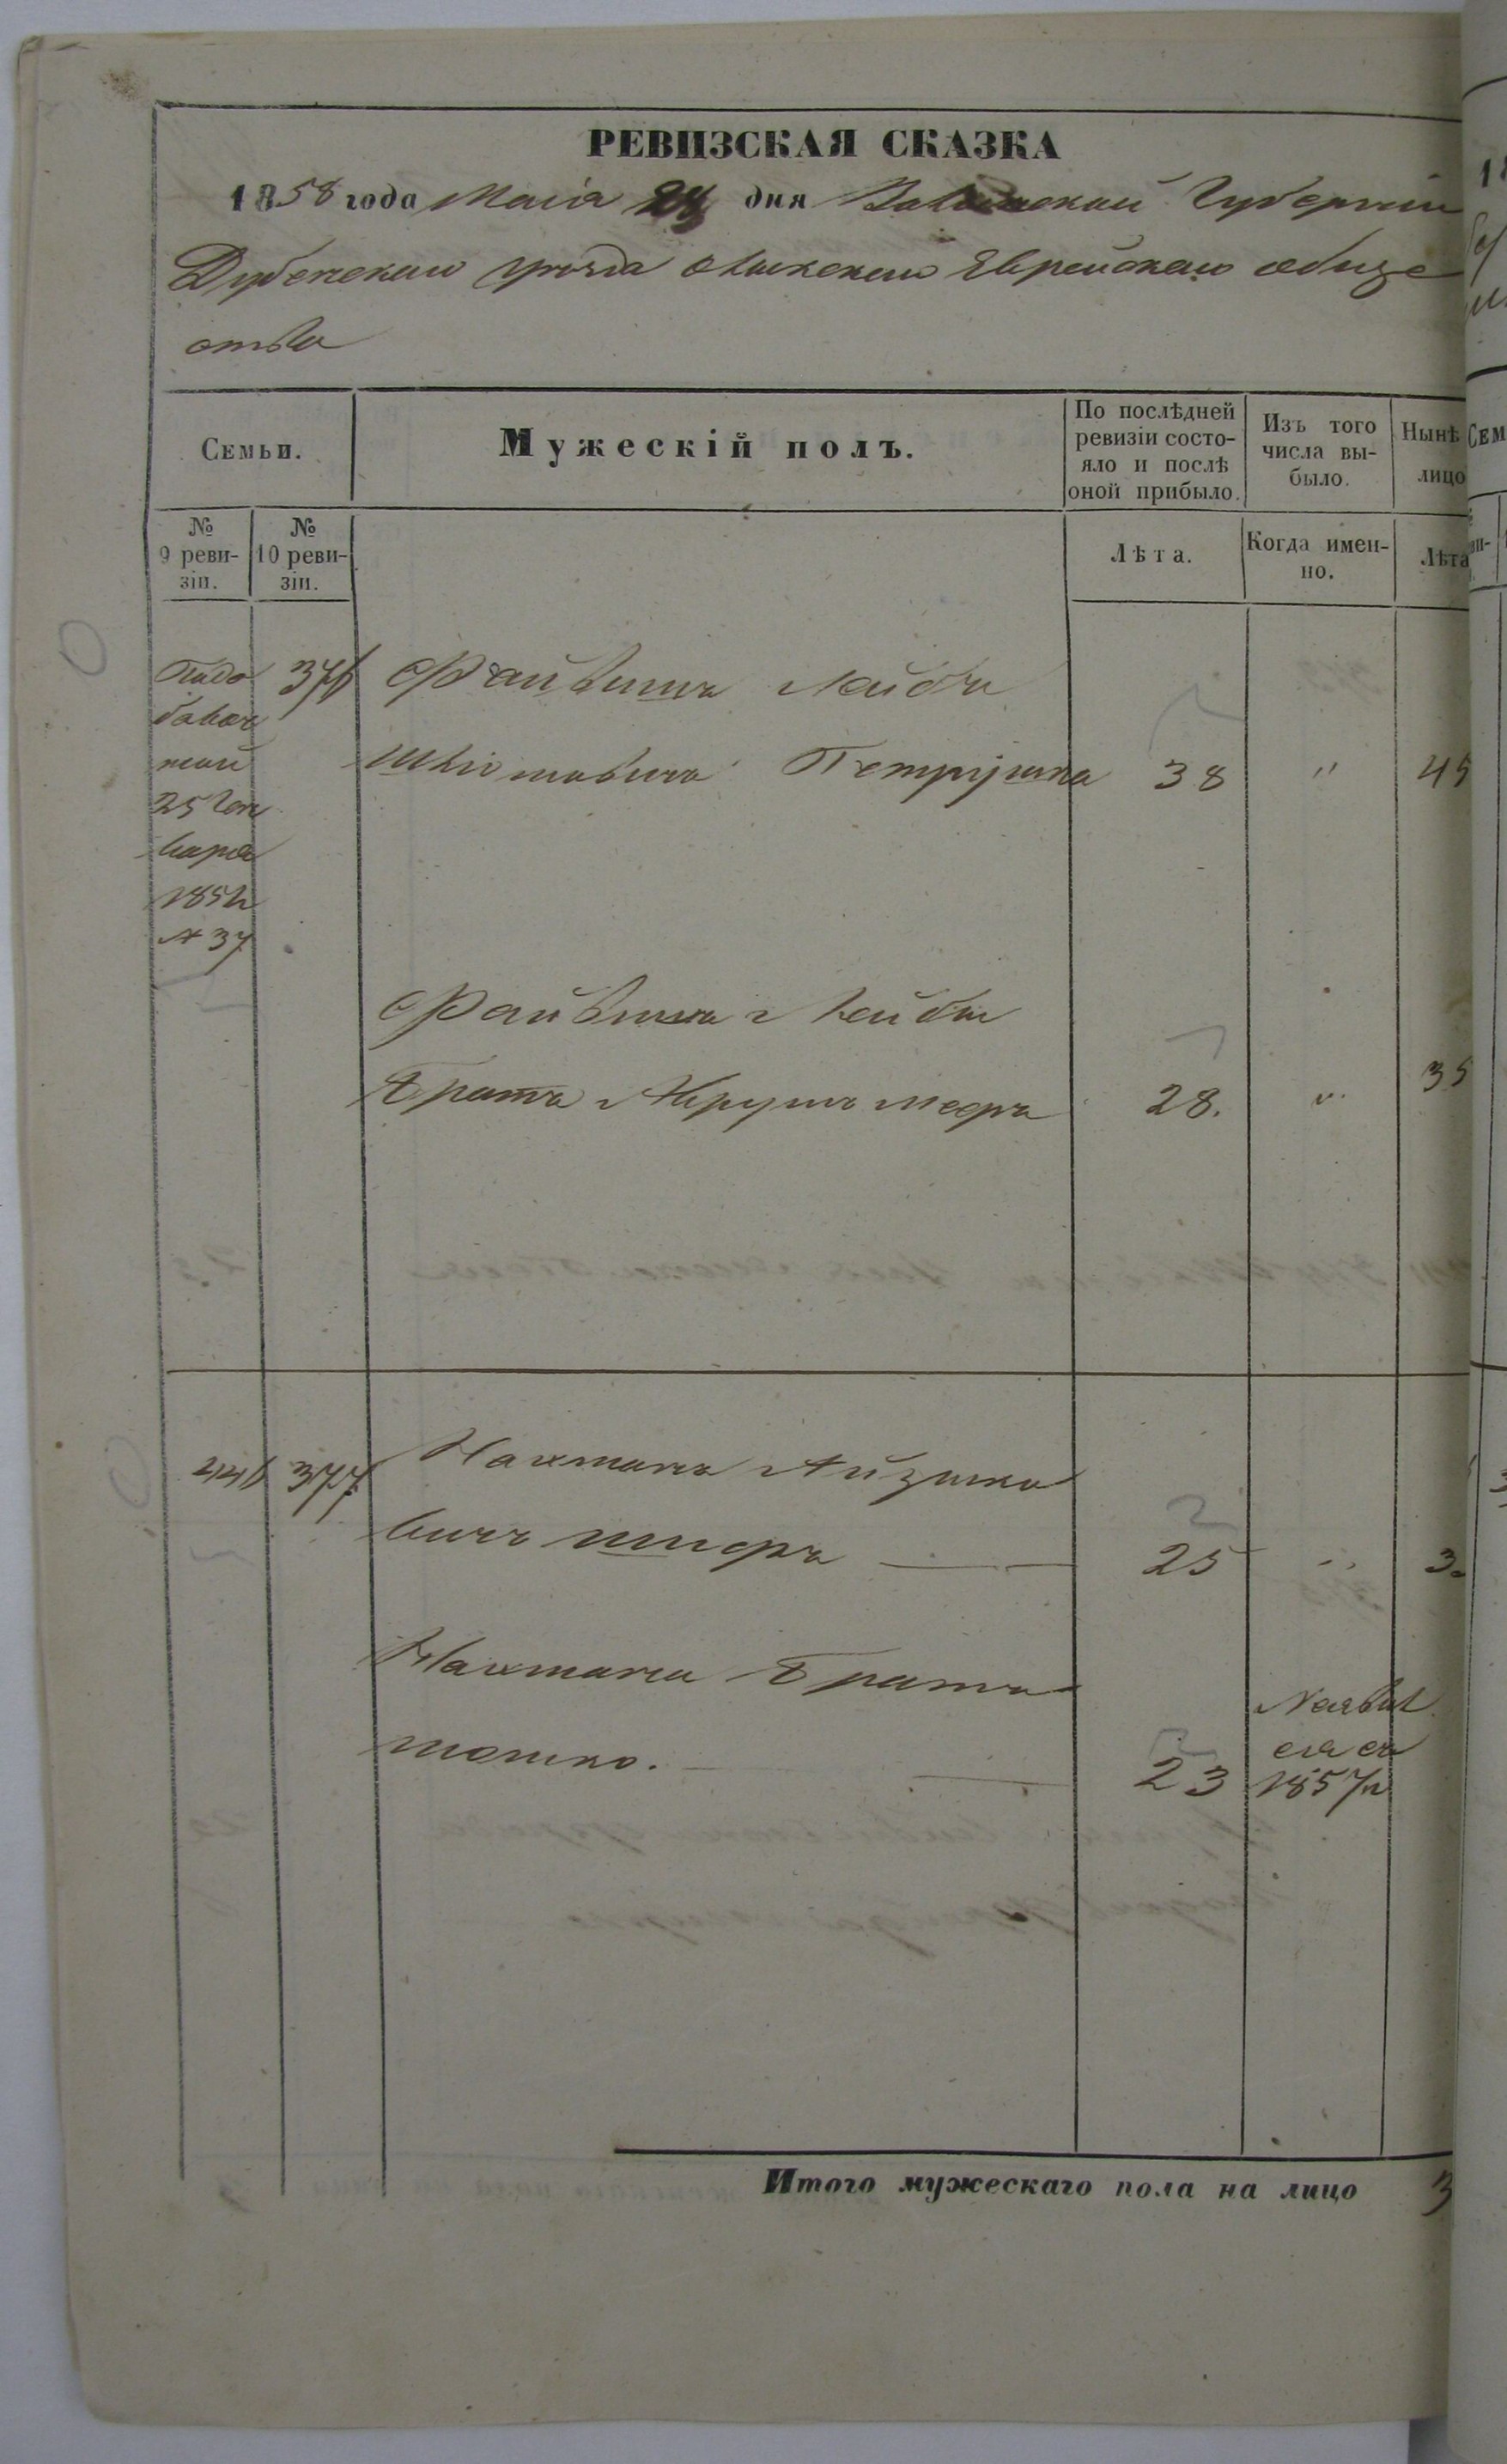 РЕВИЗСКАЯ СКАЗКА
1858 года Маія дня Волынской Губерніи
Дубенскаго уезда Олыкскаго Еврейскаго обще
ства
Семьи.
Мужескій полъ.
По послѣдней ревизіи состо-
яло и послѣ
оной прибыло.
Изъ того
числа вы-
было.
Нынѣ
лицо
№
9 реви-
зіи.
№
10 реви-
зіи.
Лѣта.
Когда имен-
но.
Лѣта
По до
бавоч
ной
25 Ген
варя
1852
№ 37
376
Файвишъ Лейбъ
Шлiомовичъ Петрушка 38 " 45
Файвиша Лейбы
Братъ 28. " 35
441 377
Нахманъ Айзико
вичъ Шифръ 25 " 3
Нахмана Братъ
Мошко. 23
1857
Итого мужескаго пола на лицо 3